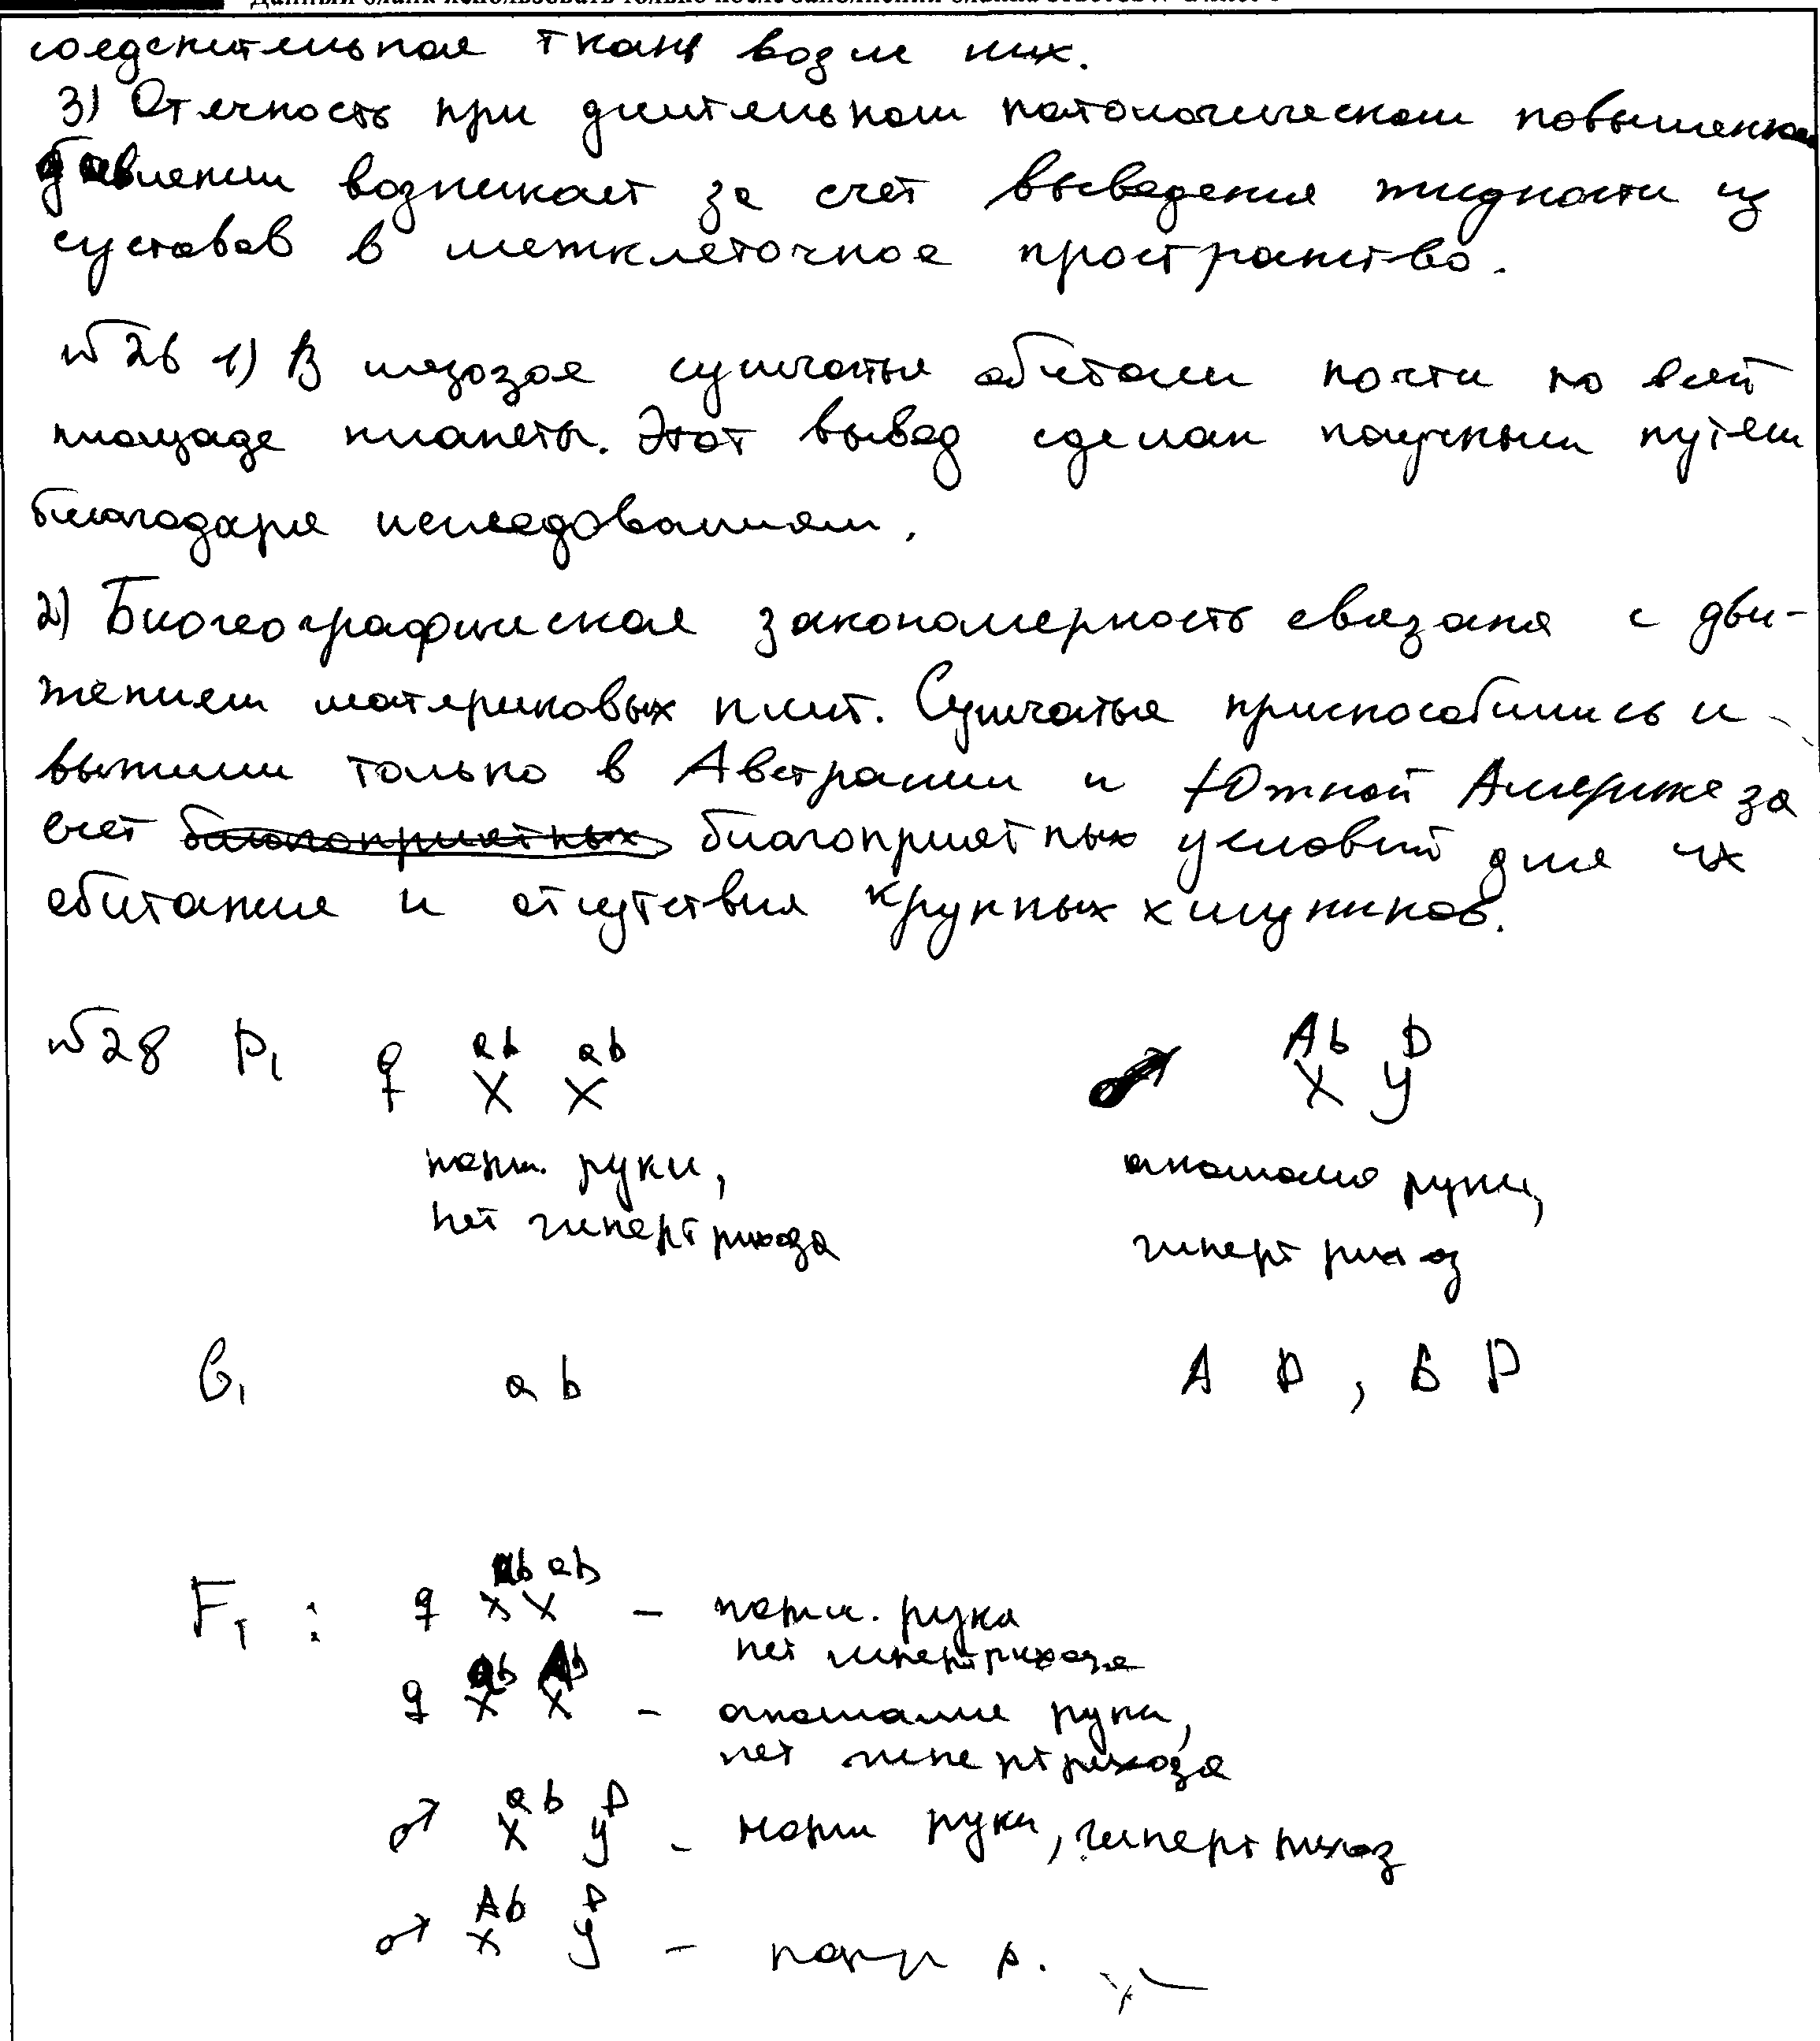 соеденительная ткань возле них.
3) Отечность при длительном патологическом повышенном
давлении возникает за счет выведения жидкости из
суставов в межклеточное пространство.
№26 1) В мезозое сумчатые обитали почти по всей
площаде планеты. Этот вывод сделан научным путем
благодаря исследованиям.
2) Биогеографическая закономерность связана с дви-
жением материковых плит. Сумчатые приспособились и
выжили только в Австралии и Южной Америке за
счет благоприятных благоприятных условий для их
обитания и отсутствия крупных хищников.
№28 P₁ ♀ X^ab X^ab ♂ X^Ab Y^D
норм. руки, аномалия руки,
нет гипертрихоза гипертрихоз
G₁ ab A D, b D
F₁ : ♀ X^ab X^ab – норм. рука
нет гипертрихоза
♀ X^ab X^Ab – аномалия руки,
нет гипертрихоза
♂ X^ab Y^D – норм руки, гипертрихоз
♂ X^Ab Y^D – норм р.